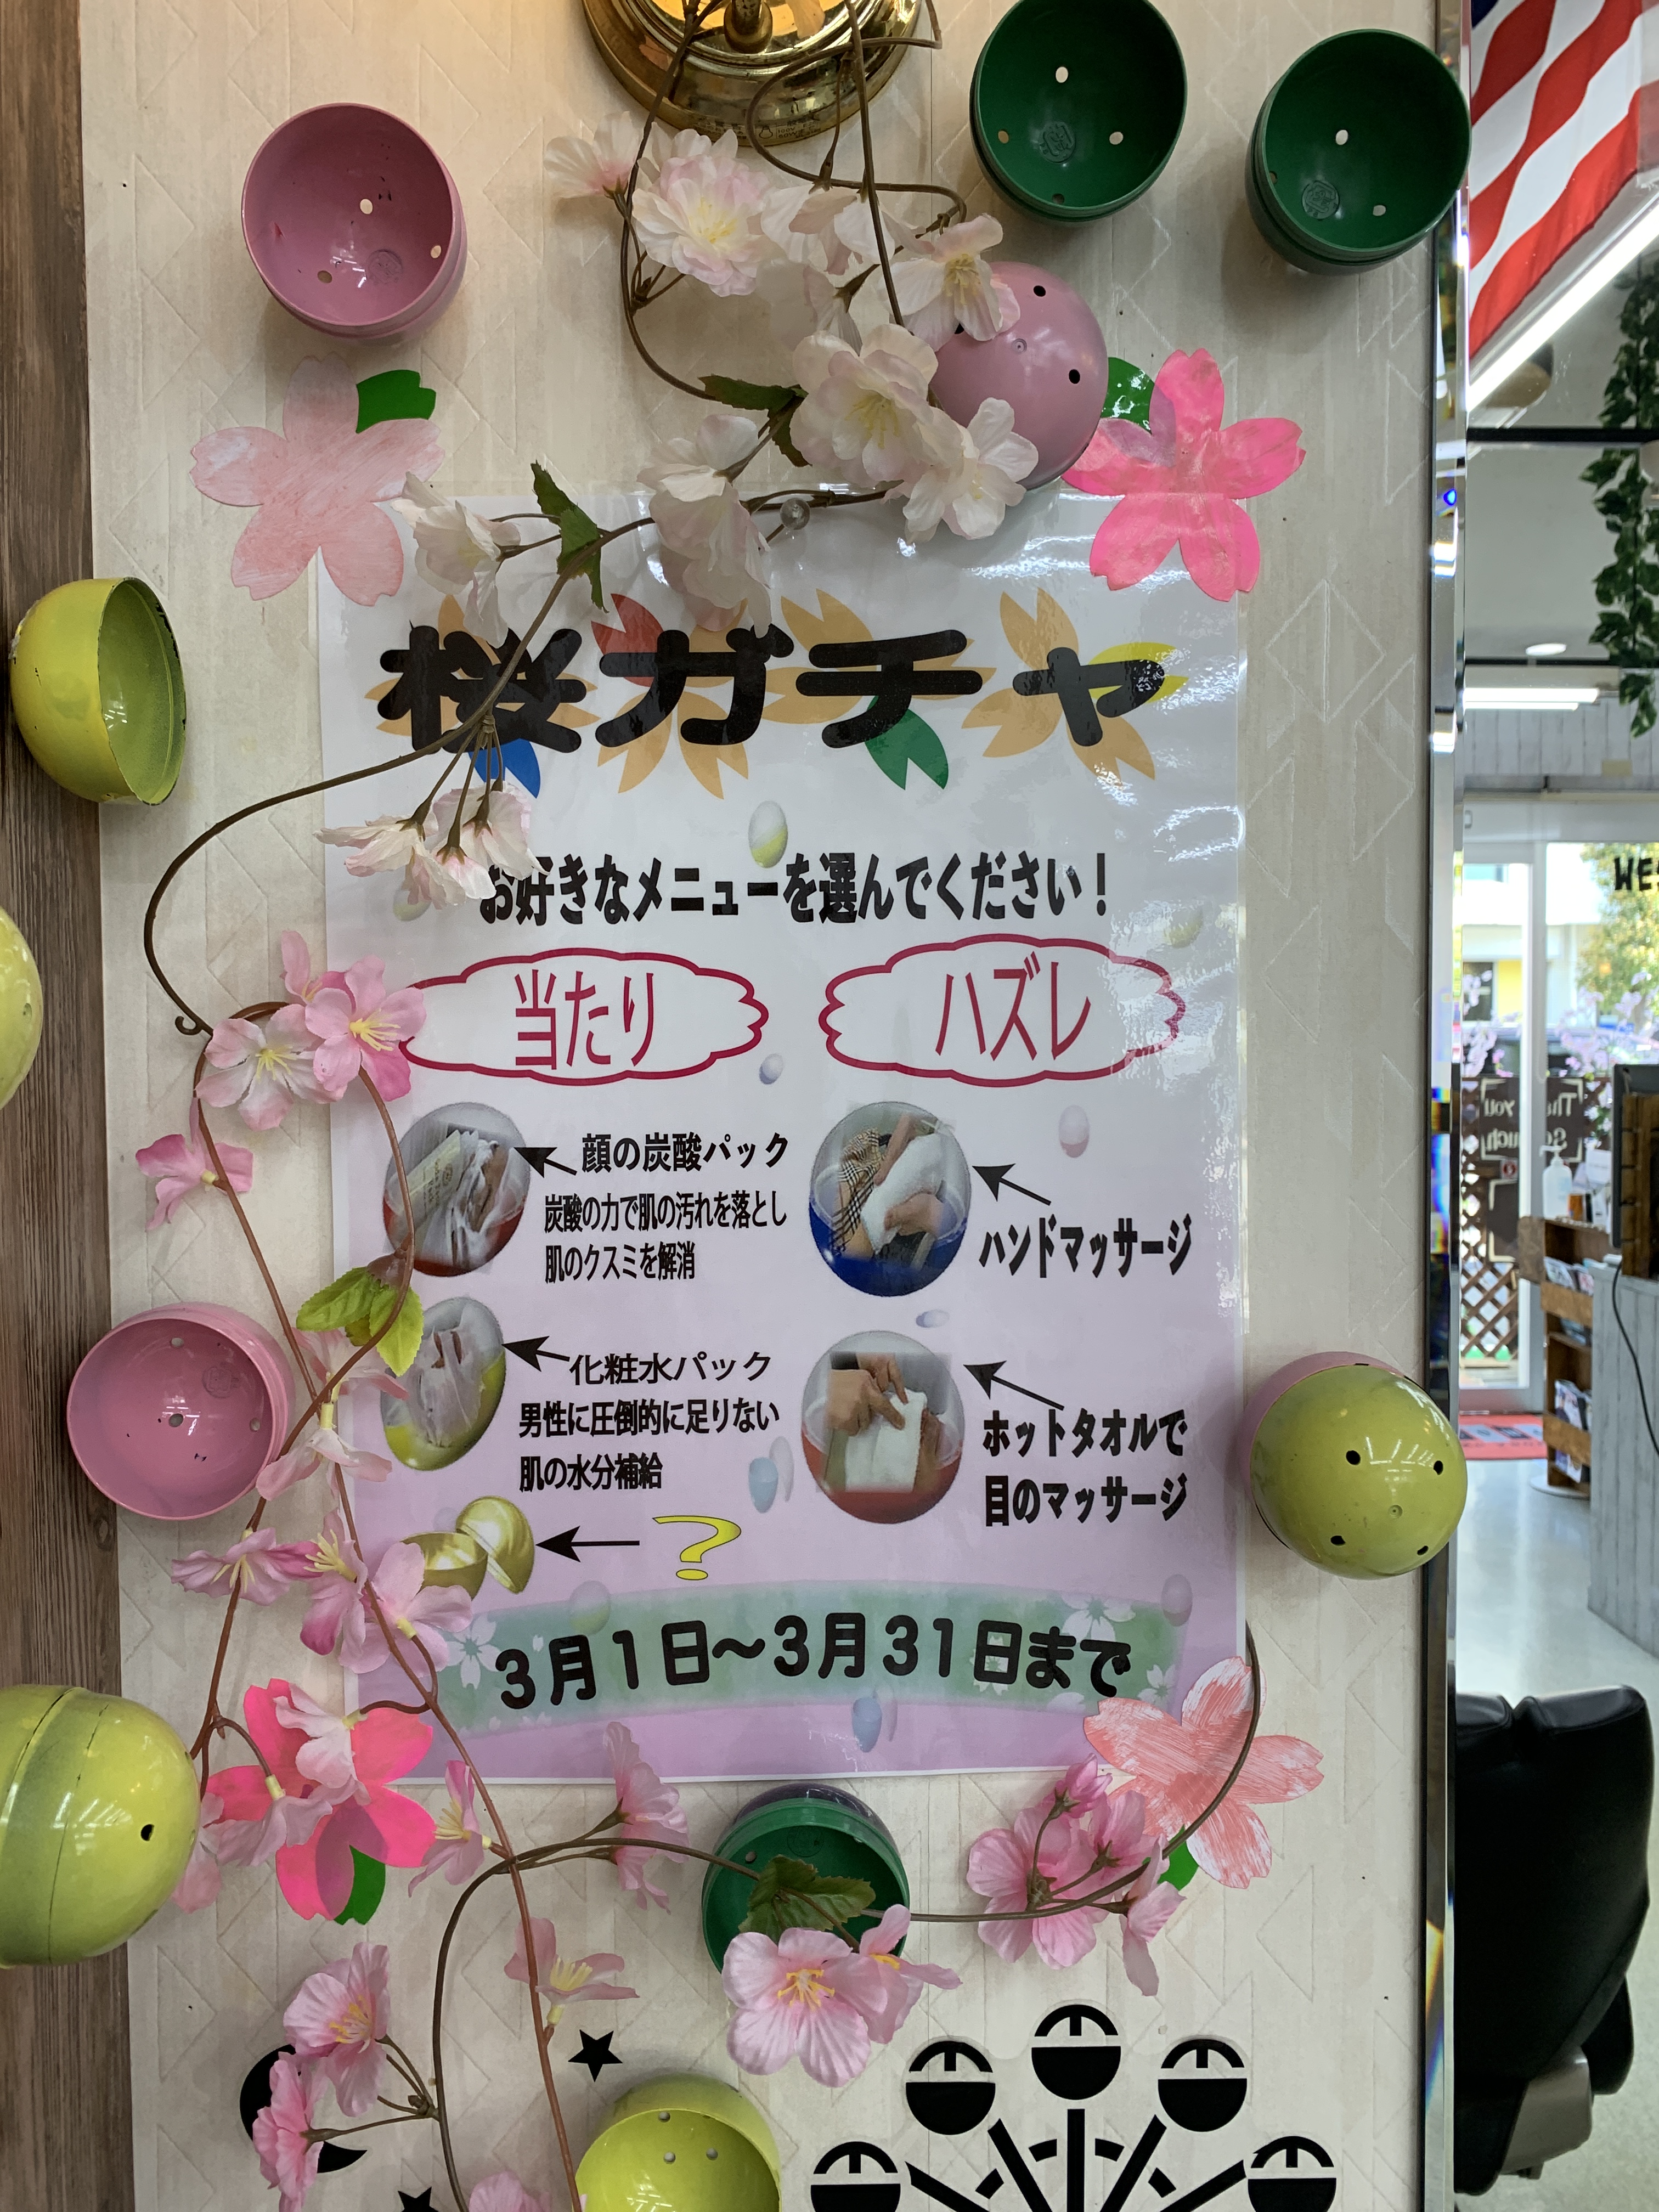 桜ガチャ
お好きなメニューを選んでください！
当たり
ハズレ
顔の炭酸パック
炭酸の力で肌の汚れを落とし
肌のクスミを解消
ハンドマッサージ
化粧水パック
男性に圧倒的に足りない
肌の水分補給
ホットタオルで
目のマッサージ
?
3月1日〜3月31日まで
you